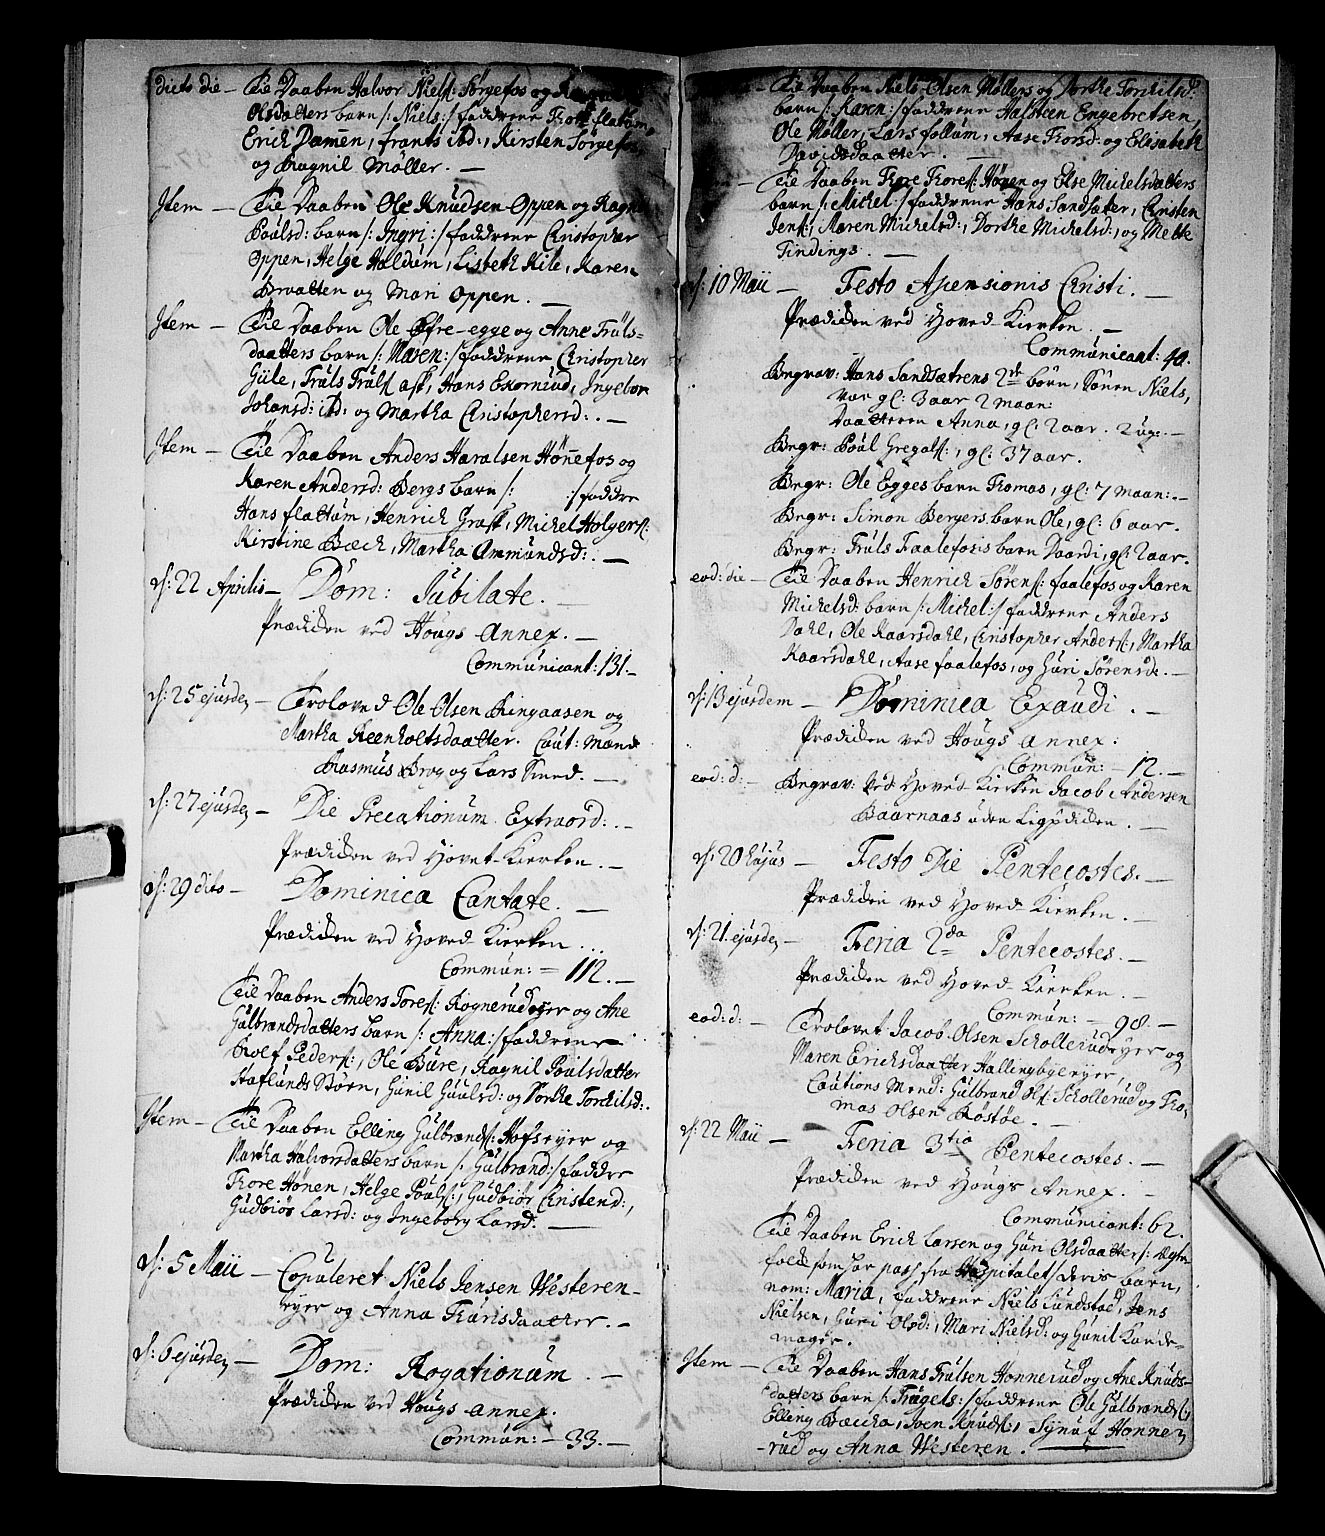 dicto die — Til Daaben Halvor Niels: Sørgefos og
Olsdatters barn /: Niels :/ faddrene Tore flatum,
Erich Damēn, frants ibd:, Kirsten Sørgefos,
og Ragnil Møller. —
Item — Til Daaben Ole Knudsen Oppen og Ragn
Poulsd: barn /: Ingri :/ faddrene Christopher
Oppen, Helge Haldum, Lisbeth Kile, Karen
Braatten og Mari Oppen. —
Item — Til Daaben Ole Øfre-egge og Anne Truls-
daatters barn /: Maren :/ faddrene Christopher
Gule, Truls Truls: ask, Hans Exornrud, Ingebor
Johansd: ibd: og Martha Christophersd: . —
Item — Til Daaben Anders Haralsen Hōnefos og
Karen Andersd: Bergs barn /: :/ faddre
Hans flattum, Henrich Grask, Michel Holgers:
Kirstine Bæck, Martha Ammundsd: . —
d: 22 Aprilis — Dom: Jubilate. —
Prædiken ved Hougs Annex. —
Communicant: 131. —
d: 25 ejusdem — Troloved Ole Olsen Ringaasen og
Martha Reenholtsdaatter. Caut: Mænd
Rasmus Brog og Lars Smed. —
d: 27 ejusdem — Die Precationum Extraord: . —
Prædiken ved Hovet-Kierken. —
d: 29 dito — Dominica Cantate. —
Prædiken ved Hoved Kierken. ..
Commun: — 112. —
Til Daaben Anders Tores: Rognerudeyer og Ane
Gulbrandsdatters barn /: Anna :/ faddrene
Rolf Peders:, Ole Bure, Ragnil Poulsdatter
Haflunds Børn, Gunil Guulsd: og Dorthe Torchilsd: .
Item — Til Daaben Elling Gulbrands: Hofseyer og
Martha Halvorsdatters barn /: Gulbrand :/ faddre
Tore Hønen, Helge Pouls:, Gudbiør Christend:,
Gudbiør Larsd: og Ingeborg Larsd. —
d: 5 Maii — Copuleret Niels Jensen Westeren-
eyer og Anna Trulsdaatter. —
d: 6 ejusdem — Dom: Rogationum . —
Prædiken ved Hougs Annex.
Commun: — 33. —
— Til Daaben Niels Olsen Møllers og Dorthe Torchilsd:
barn /: Karen :/ faddrene Halsteen Engebretsen,
Ole Møller, Lars follum, Aase Thorsd: og Elisabeth
Davidsdaatter. —
— Til Daaben Tore Tores: Hønen og Else Michelsdatters
barn /: Michel :/ faddrene Hans Sandsæter, Christen
Jens:, Maren Michelsd:, Dorthe Michelsd:, og Mette
Tindings. —
d: 10 Maii — Festo Ascensionis Christi. —
Prædiken ved Hoved Kierken. —
Communicant: 40.
Begrav: Hans Sandsætrens 2de børn, Sønen Niels,
var gl: 3 aar 2 maan:
Daatteren Anna, gl: 2 aar. 2 ug: —
Begr: Poul Gregals:, gl: 37 aar.
Begr: Ole Egges barn Thomas, gl: 7 maan: . —
Begr: Simon Bergers barn Ole, gl: 6 aar.
Begr: Truls Faalefossis barn Daardi, gl: 2 aar.
eod: die — Til Daaben Henrich Sørens: faalefos og Karen
Michelsd: barn /: Michel :/ faddrene Anders
Dahl, Ole Kaarsdahl, Christopher Anders:, Martha
Kaarsdahl, Aase faalefos, og Guri Sørensd: . —
d: 13 ejusdem — Dominica Exaudi . —
Prædiken ved Hougs Annex.
Commun: — 12. —
eod: d: — Begrav: ved Hoved-Kierken Jacob Andersen
Baarnaas uden Ligprediken. —
d: 20 hujus — Festo Die Pentecostes. —
Prædiken ved Hoved Kierken. —
d: 21 ejusdem — Feria 2da Pentecostes. —
Prædiken ved Hoved-Kierken. —
Commun: — 98. —
eod: d: — Trolovet Jacob Olsen Schollerudeyer og
Maren Erichsdaatter Hallingbyeeyer,
Cautions Mænd: Gulbrand Ols: Schollerud og Tho-
mas Olsen Løstøe. —
d: 22 Maii — Feria 3tia Pentecostes. —
Prædiken ved Hougs Annex. —
Communicant: 62.
Til Daaben Erich Larsen og Guri Olsdaatter /: Ægte
folk som har pass fra Hospitalet / deris barn,
nom: Maria, faddrene Niels Lundstad, Jens
Nielsen, Guri Olsd:, Mari Nielsd: og Gunil Kande-
mager.
Item — Til Daaben Hans Trulsen Honnerud og Ane Knuds-
datters barn /: Trugels :/ faddrene Ole Gulbrands:,
Elling Bæcken, Sven Knuds:, Synuf Honne-
-rud og Anna Westeren. —